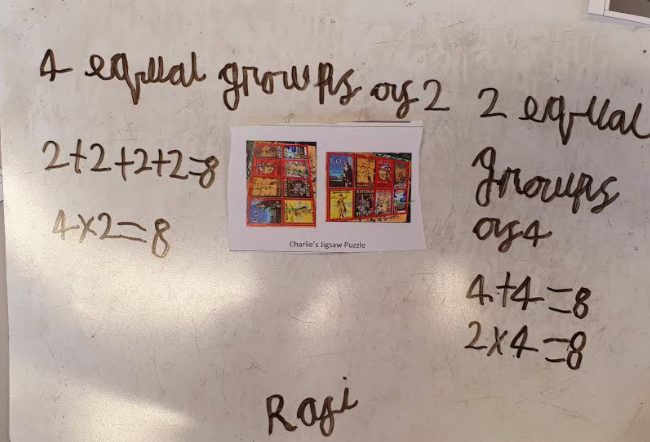 4 equal groups of 2
2+2+2+2=8
4×2=8
Charlie's Jigsaw Puzzle
2 equal
groups
of 4
4+4=8
2×4=8
Rafi